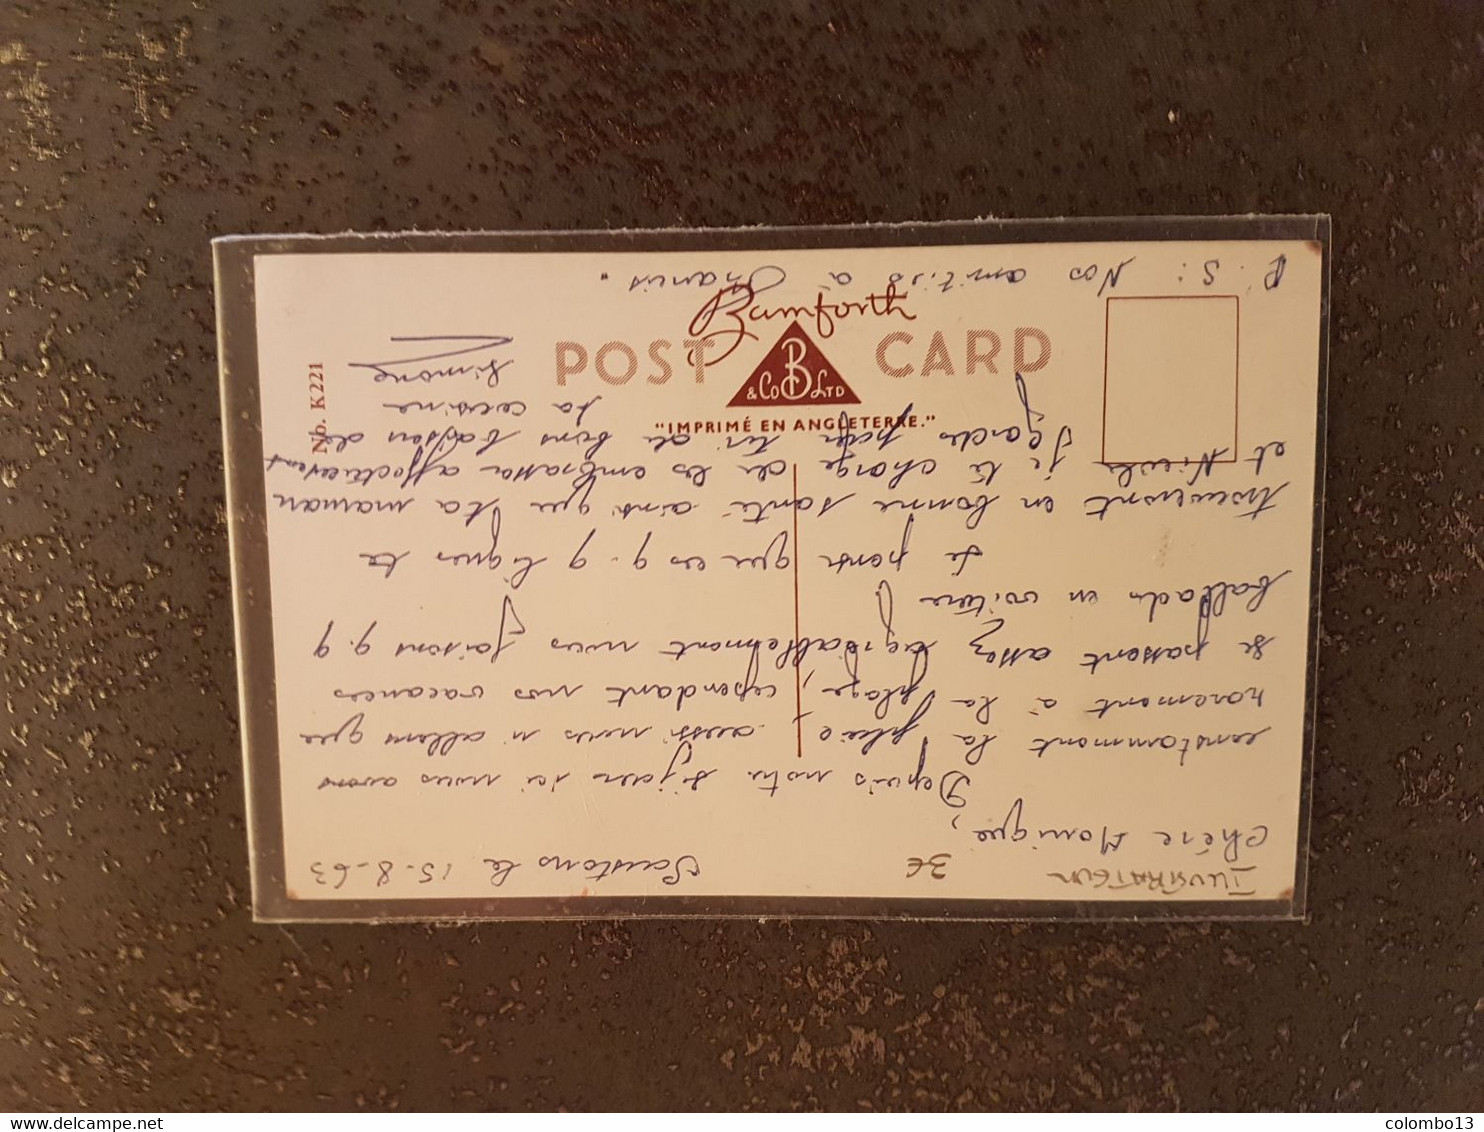 Bamforth
POST CARD
& Co B LTD
"IMPRIMÉ EN ANGLETERRE."
No. K221
ILLUSTRATEUR
3€
Soustons le 15-8-63
Chère Monique,
Depuis notre séjour ici nous avons
constamment la pluie, aussi nous n'allons que
rarement à la plage, cependant nos vacances
se passent assez agréablement nous faisons q.q
ballades en voiture
Je pense que ces q.q lignes te
trouveront en bonne santé ainsi que ta maman
et Nicole je te charge de les embrasser affectueusement
Garde pour toi de bons baisers de
ta cousine
Simone
P.S: Nos amitiés à Francis"
colombo13